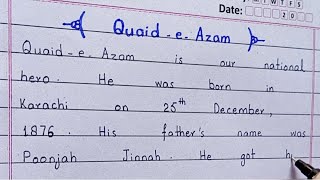 M T W T F S
Date: 20
Quaid-e-Azam
Quaid-e-Azam is our national
hero. He was born in
Karachi on 25th December,
1876. His father's name was
Poonjah Jinnah. He got h